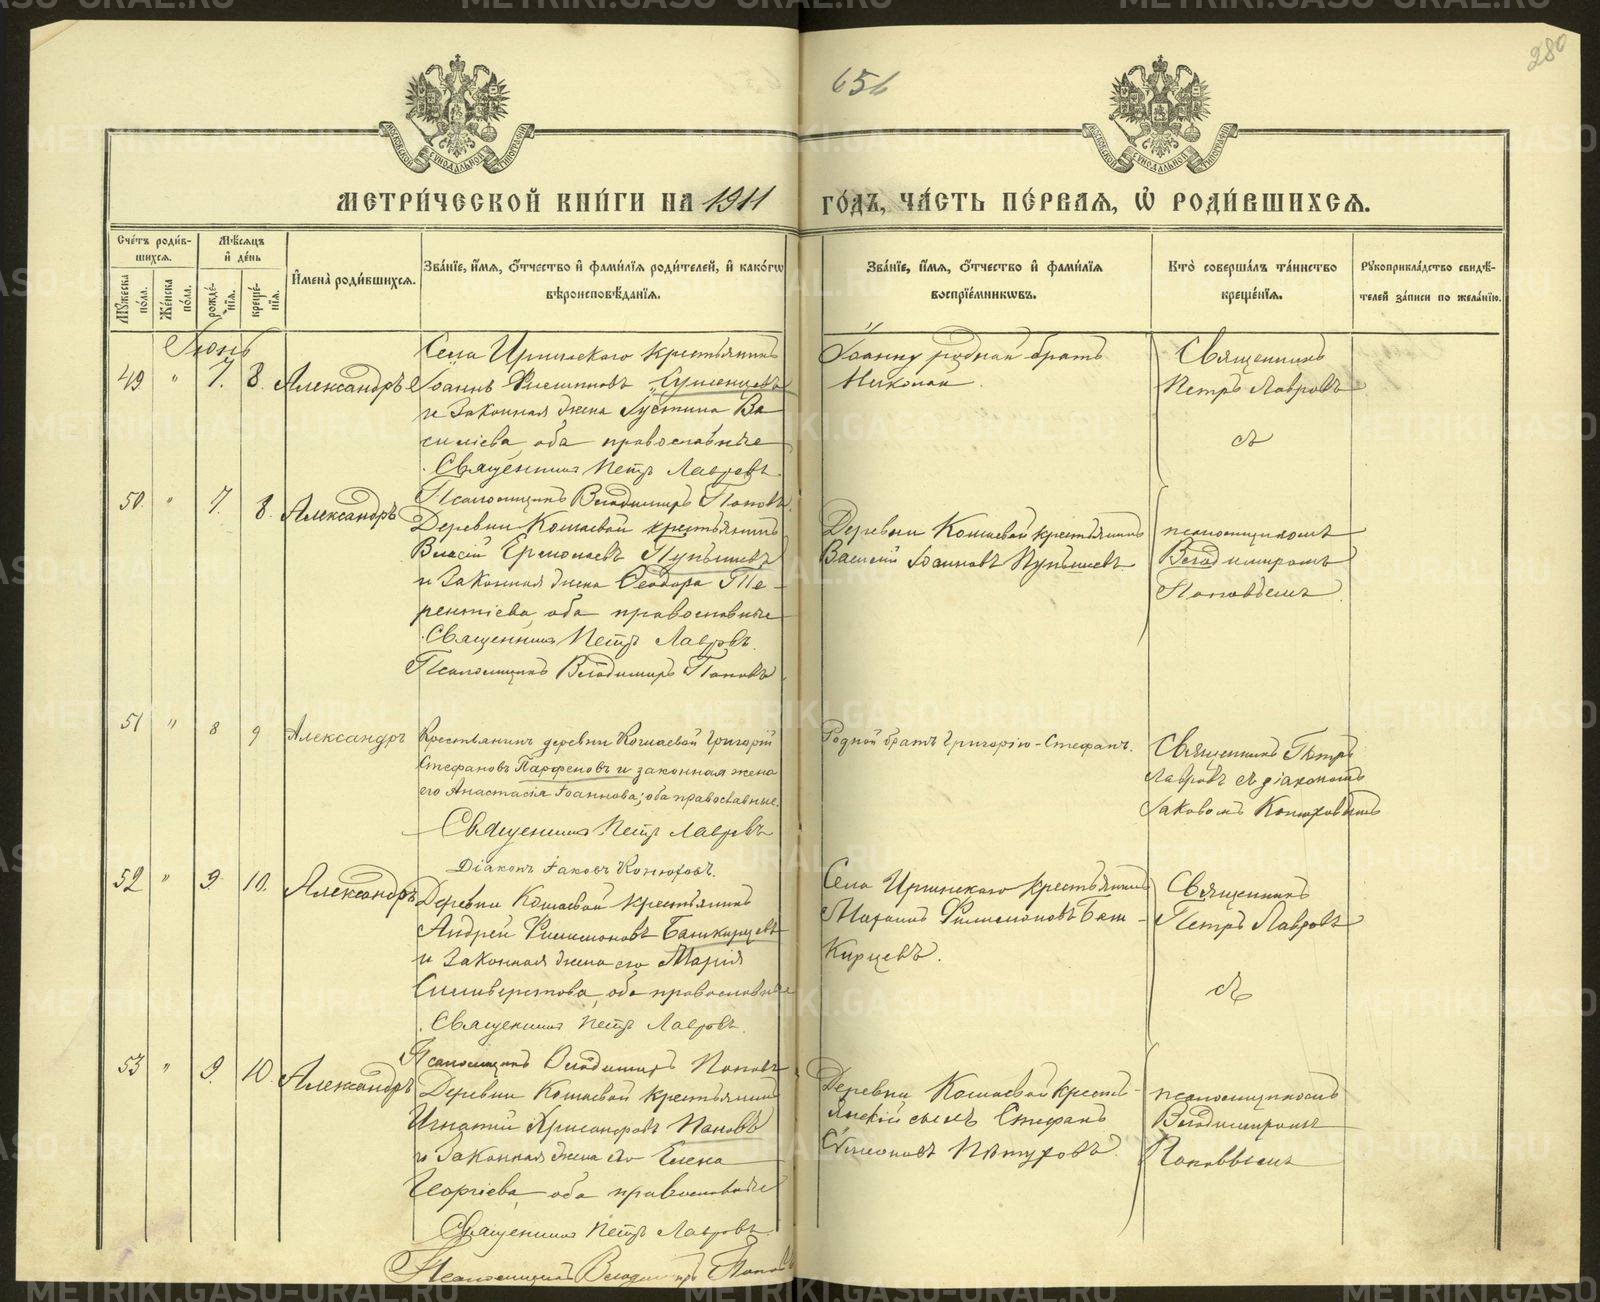 656
280
МЕТРИ́ЧЕСКОЙ КНИ́ГИ НА 1911 ГО́ДЪ, ЧА́СТЬ ПЕ́РВАЯ, Ѡ҆ РОДИ́ВШИХСЯ.
Сче́тъ роди́в-
шихся.
Мꙋ́жеска по́ла.
Же́нска по́ла.
Мѣ́сяцъ
и҆ де́нь
рожде́-
нїя.
креще́-
нїя.
И҆мена̀ роди́вшихся.
Зва́нїе, и҆́мя, ѻ҆́тчество и҆ фами́лїя роди́телей, и҆ како́гѡ
вѣроисповѣ́данїя.
Зва́нїе, и҆́мя, ѻ҆́тчество и҆ фами́лїя
воспрїе́мникѡвъ.
Кто̀ соверша́лъ та́инство
креще́нїя.
Рꙋкоприкла́дство свидѣ́-
телей за́писи по жела́нїю.
Іюнь
49 " 7. 8. Александръ
Села Иргинскаго крестьянинъ
Іоаннъ
и законная жена Іустина Ва
силіева, оба православные
Священникъ Петръ Лавровъ
Псаломщикъ Владимиръ Поповъ
Іоанну родной братъ
Николай.
Священникъ
Петръ Лавровъ
съ
50. " 7. 8. Александръ
Деревни Кошаевой крестьянинъ
Власій Ермолаевъ Пупышевъ
и законная жена Ѳеодора Те-
рентіева, оба православные
Священникъ Петръ Лавровъ.
Псаломщикъ Владимиръ Поповъ
Деревни Кошаевой крестьянинъ
Василій Іоанновъ Пупышевъ.
псаломщикомъ
Владимиромъ
Поповымъ.
51 " 8 9 Александръ
Крестьянинъ деревни Кошаевой Григорій
Стефановъ Парфеновъ и законная жена
его Анастасія Іоаннова; оба православные.
Священникъ Петръ Лавровъ
Діаконъ Іаковъ Конюховъ.
Родной братъ Григорію - Стефанъ.
Священникъ Петръ
Лавровъ съ діакономъ
Іаковомъ Конюховымъ
52 " 9 10. Александръ
Деревни Кошаевой крестьянинъ
Андрей Филимоновъ Башкирцевъ
и законная жена его Марія
Сильверстова, оба православные
Священникъ Петръ Лавровъ.
Псаломщикъ Владимиръ Поповъ
Села Иргинскаго крестьянинъ
Филимоновъ Баш-
кирцевъ.
Священникъ
Петръ Лавровъ
съ
53 " 9. 10 Александръ
Деревни Кошаевой крестьянинъ
Игнатій Хрисанфовъ Пановъ
и законная жена его Елена
Георгіева, оба православные
Священникъ Петръ Лавровъ
Псаломщикъ Владимиръ Поповъ
Деревни Кошаевой кресть-
янскій сынъ Стефанъ
Симеоновъ Пѣтуховъ.
псаломщикомъ
Владимиромъ
Поповымъ
METRIKI.GASO-URAL.RU